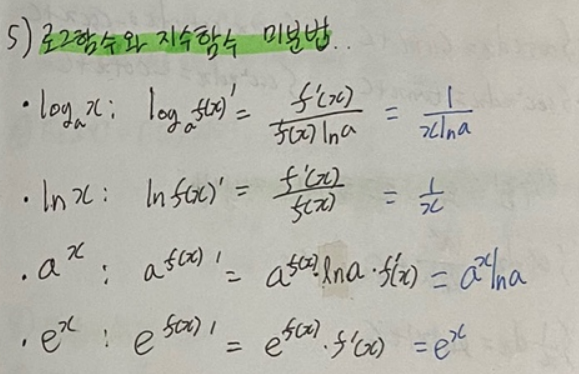 5) 로그함수와 지수함수 미분법..
· logₐx : logₐf(x)' = f'(x)/f(x)lna = 1/xlna
· lnx : lnf(x)' = f'(x)/f(x) = 1/x
· a^x : a^f(x)' = a^f(x)·lna·f'(x) = a^x lna
· e^x : e^f(x)' = e^f(x)·f'(x) = e^x